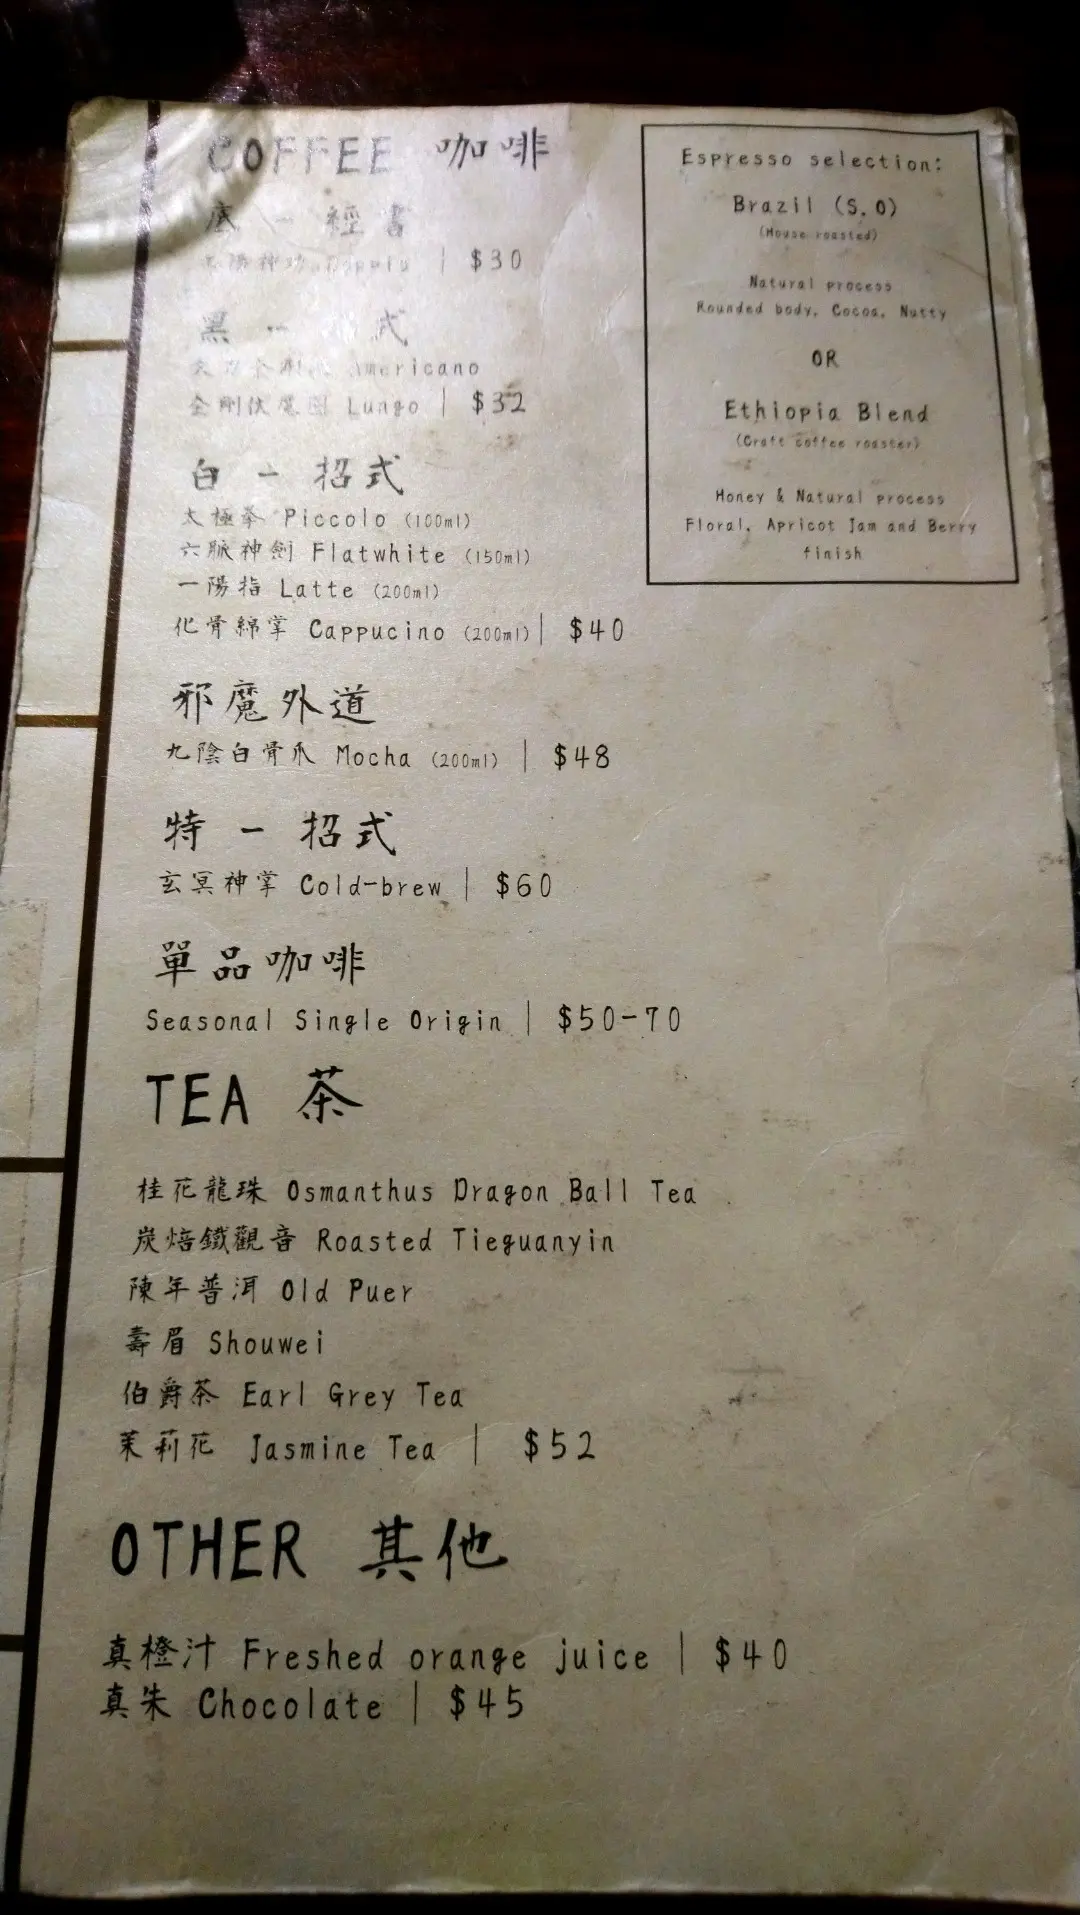 COFFEE 咖啡
底 - 經書
九陽神功 Doppio | $30
黑 - 招式
Americano
金剛伏魔圈 Lungo | $32
白 - 招式
太極拳 Piccolo (100ml)
六脈神劍 Flatwhite (150ml)
一陽指 Latte (200ml)
化骨綿掌 Cappucino (200ml) | $40
邪魔外道
九陰白骨爪 Mocha (200ml) | $48
特 - 招式
玄冥神掌 Cold-brew | $60
單品咖啡
Seasonal Single Origin | $50-70
TEA 茶
桂花龍珠 Osmanthus Dragon Ball Tea
炭焙鐵觀音 Roasted Tieguanyin
陳年普洱 Old Puer
壽眉 Shouwei
伯爵茶 Earl Grey Tea
茉莉花 Jasmine Tea | $52
OTHER 其他
真橙汁 Freshed orange juice | $40
真朱 Chocolate | $45
Espresso selection:
Brazil (S.O)
(House roasted)
Natural process
Rounded body, Cocoa, Nutty
OR
Ethiopia Blend
(Craft coffee roaster)
Honey & Natural process
Floral, Apricot Jam and Berry
finish